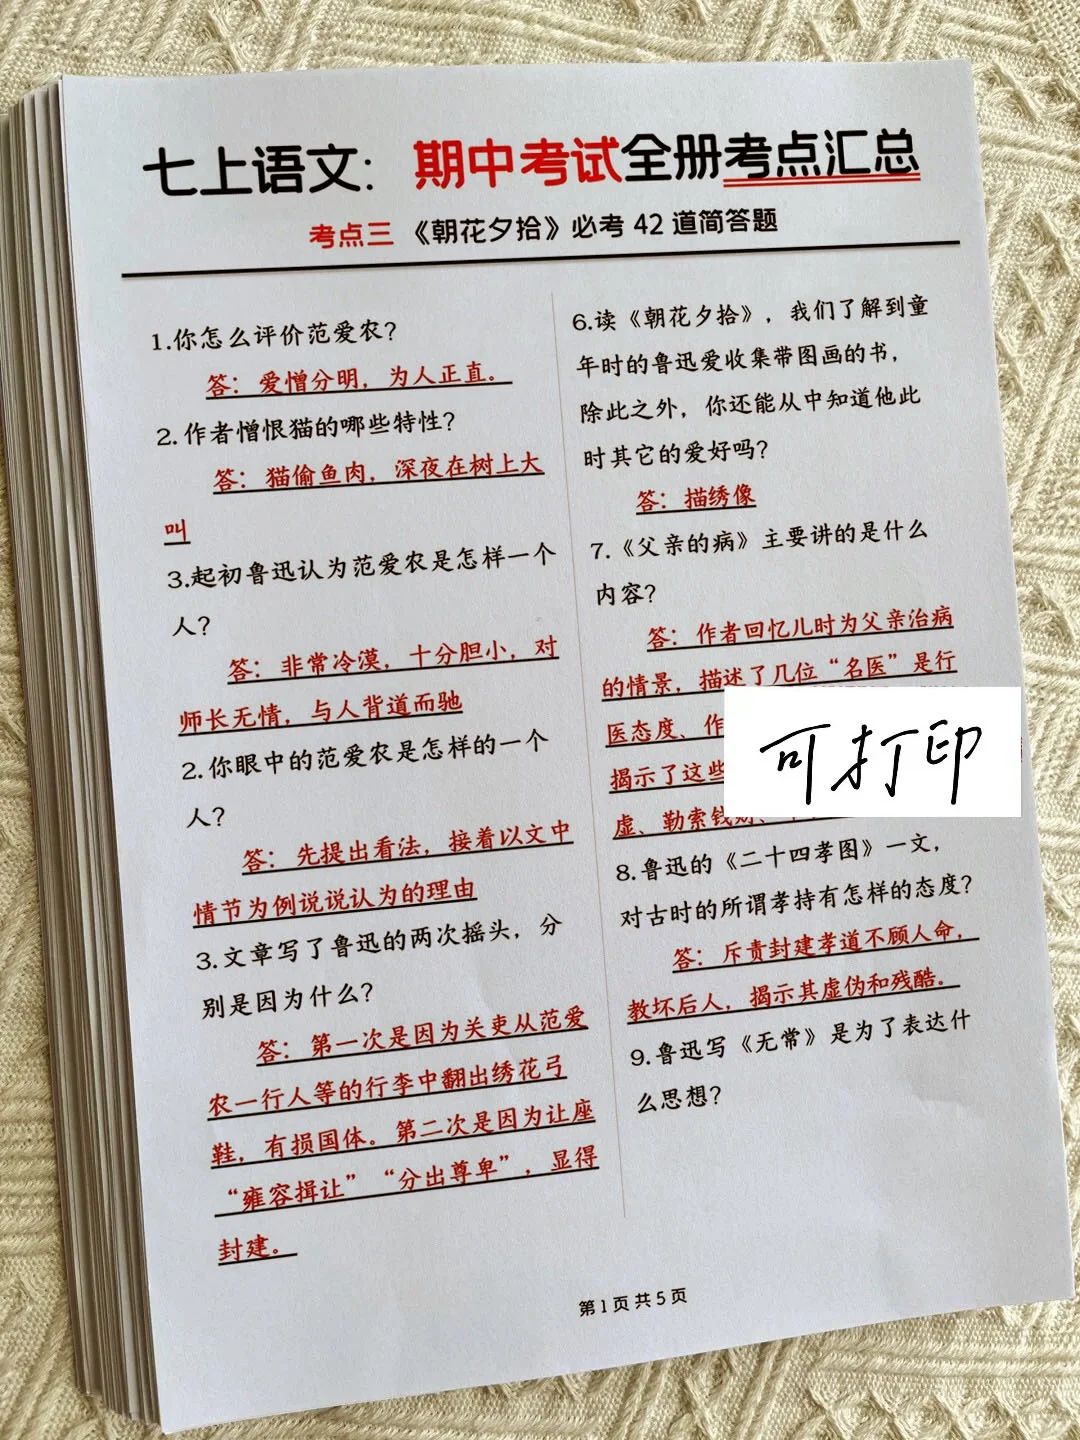 七上语文：期中考试全册考点汇总
考点三《朝花夕拾》必考 42 道简答题
1.你怎么评价范爱农？
答：爱憎分明，为人正直。
2.作者憎恨猫的哪些特性？
答：猫偷鱼肉，深夜在树上大
叫
3.起初鲁迅认为范爱农是怎样一个
人？
答：非常冷漠，十分胆小，对
师长无情，与人背道而驰
2.你眼中的范爱农是怎样的一个
人？
答：先提出看法，接着以文中
情节为例说说认为的理由
3.文章写了鲁迅的两次摇头，分
别是因为什么？
答：第一次是因为关吏从范爱
农一行人等的行李中翻出绣花弓
鞋，有损国体。第二次是因为让座
“雍容揖让”“分出尊卑”，显得
封建。
6.读《朝花夕拾》，我们了解到童
年时的鲁迅爱收集带图画的书，
除此之外，你还能从中知道他此
时其它的爱好吗？
答：描绣像
7.《父亲的病》主要讲的是什么
内容？
答：作者回忆儿时为父亲治病
的情景，描述了几位“名医”是行
医态度、作
揭示了这些
虚、勒索钱财、
可打印
8.鲁迅的《二十四孝图》一文，
对古时的所谓孝持有怎样的态度？
答：斥责封建孝道不顾人命，
教坏后人，揭示其虚伪和残酷。
9.鲁迅写《无常》是为了表达什
么思想？
第 1 页 共 5 页